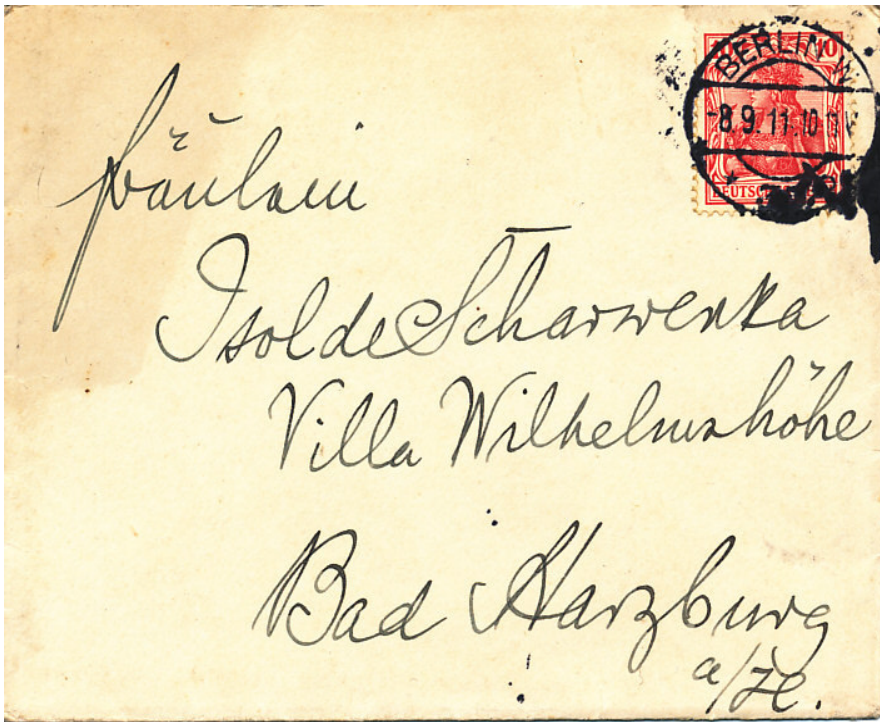 BERLIN W.
-8.9.11.10
10
DEUTSCHES
Fräulein
Isolde Scharwenka
Villa Wilhelmshöhe
Bad Harzburg
a/H.